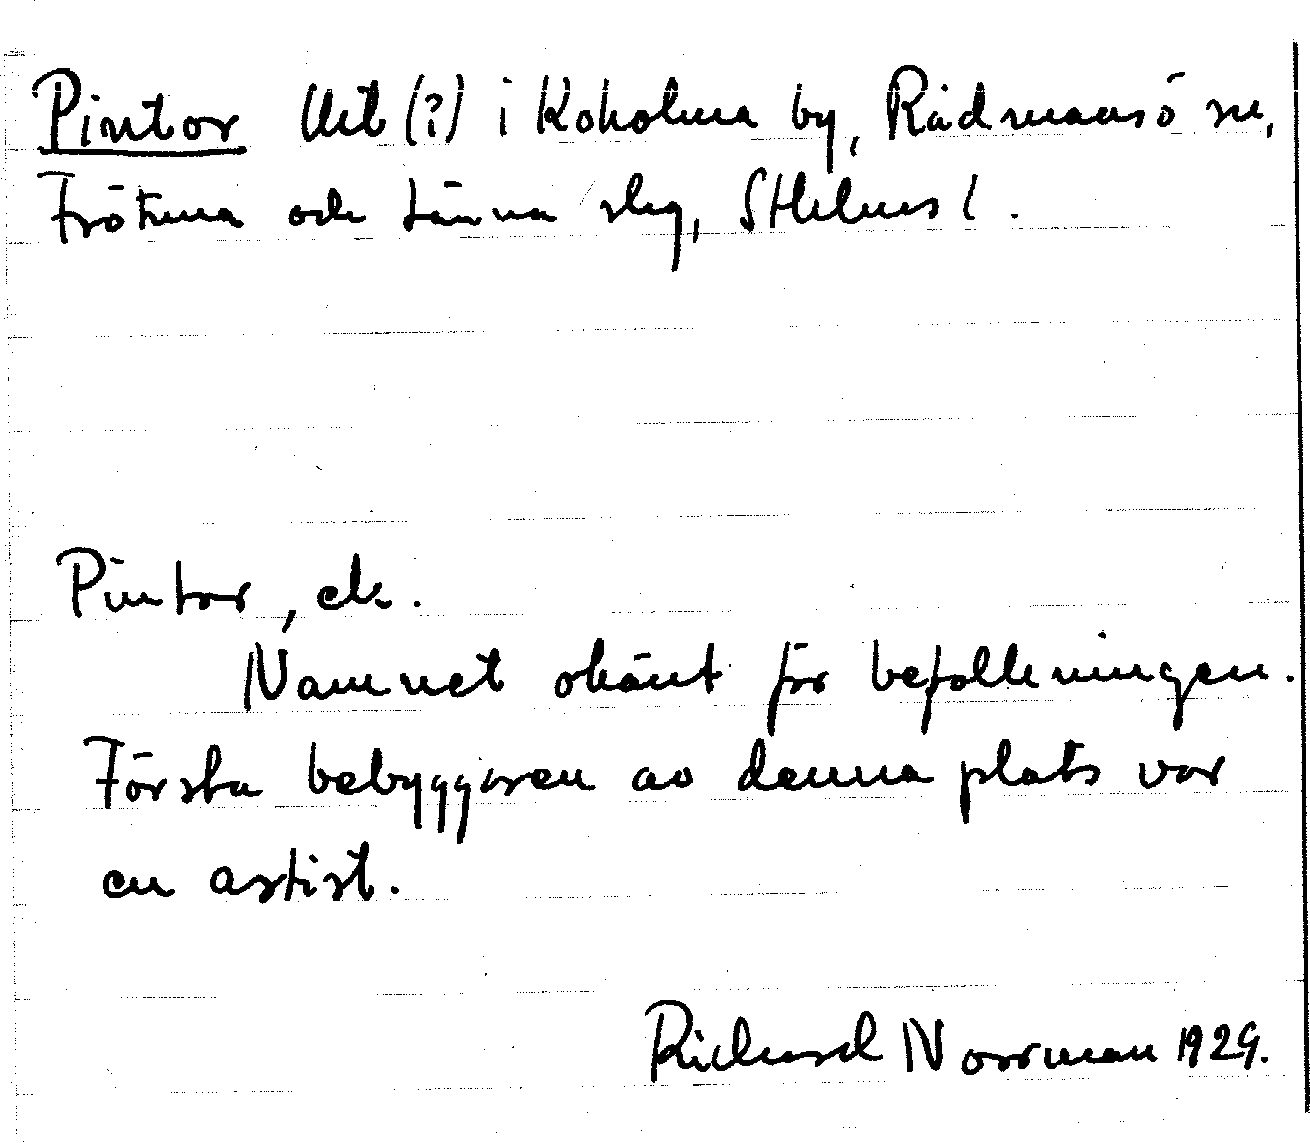 Pintor Utt (?) i Koholma by, Rådmansö sn,
Frötuna och Länna slg, Sthlms l.
Pintor, ck.
Namnet okänt för befolkningen.
Första bebyggaren av denna plats var
en artist.
Richard Norrman 1929.